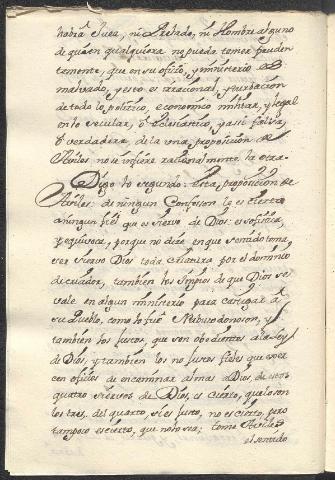 habrá Juez, ni Prelado, ni Hombre alguno
de quien qualquiera no pueda temer pruden
temente, que en su oficio, y ministerio es
malvado, y esto es irracional, y turbacion
de todo lo politico, economico militar, y legal
en lo secular, ó Eclesiastico, y assi falsa,
ó verdadera de la una, proposicion de
no se infiere racionalmente la otra.
Digo lo segundo: Esta proposicion de
de ningun Confesor lo es cierto
a ningun fiel que es siervo de Dios: es sofistica,
y equivoca, porque no dice en que sentido toma,
ser siervo Dios toda criatura por el dominio
de criador, tambien los Impios de que Dios se
vale en algun ministerio para castigar á
su Pueblo, como lo fué Nabucodonosor, y
tambien los Justos, que son obedientes a la Ley
de Dios, y tambien los no Justos fieles que exer
cen oficios de encaminar almas a Dios, de estos
quatro siervos de Dios, es cierto, que lo son
los tres, del quarto, si es justo, no es cierto, pero
tampoco es cierto, que no lo sea; como
el sentido